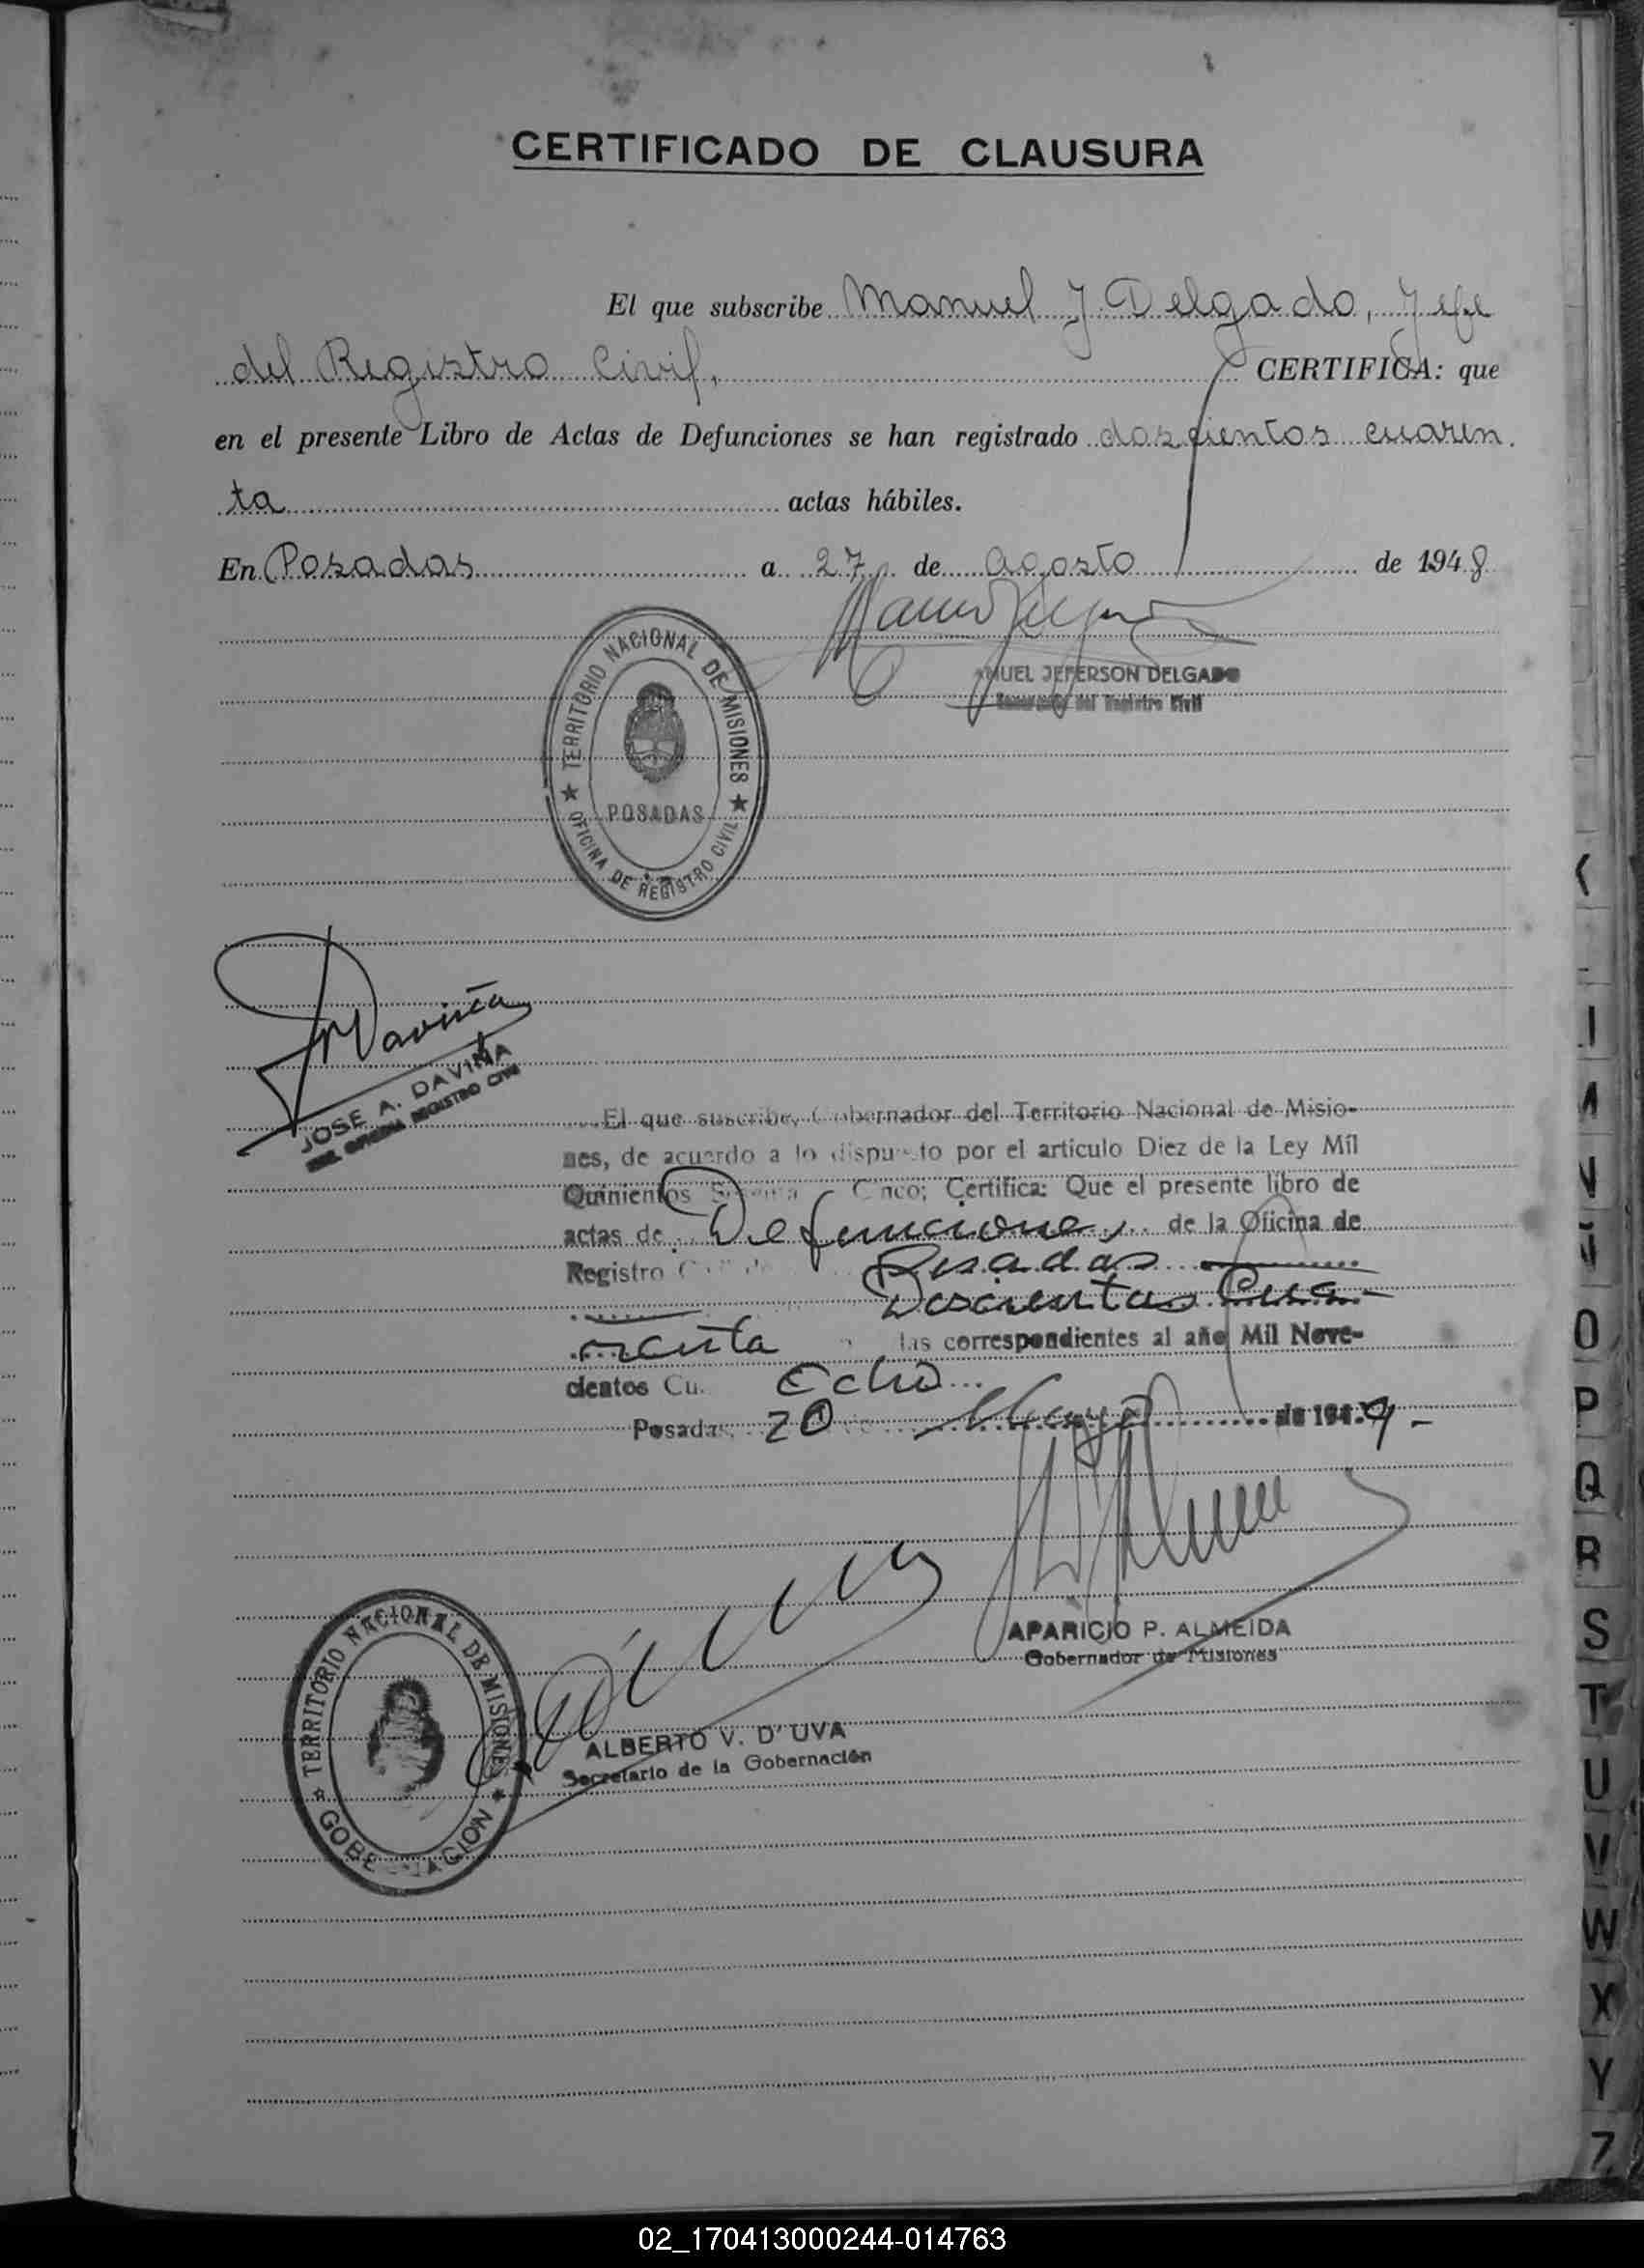 CERTIFICADO DE CLAUSURA
El que subscribe Manuel J. Delgado, Jefe
del Registro Civil, CERTIFICA: que
en el presente Libro de Actas de Defunciones se han registrado doscientos cuaren
ta actas hábiles.
En Posadas a 27 de agosto de 1948
NUEL JEFERSON DELGADO
del Registro Civil
TERRITORIO NACIONAL DE MISIONES
POSADAS
OFICINA DE REGISTRO CIVIL
Daviña
JOSE A. DAVIÑA
OFICINA REGISTRO CIVIL
El que suscribe, Gobernador del Territorio Nacional de Misio-
nes, de acuerdo a lo dispuesto por el artículo Diez de la Ley Mil
Quinientos Sesenta Cinco; Certifica: Que el presente libro de
actas de Defunciones de la Oficina de
Registro Posadas
Doscientas Cua-
renta las correspondientes al año Mil Nove-
cientos Cu. Ocho
Posadas, 20 Mayo de 1949.-
APARICIO P. ALMEIDA
Gobernador de Misiones
ALBERTO V. D'UVA
Secretario de la Gobernación
TERRITORIO NACIONAL DE MISIONES
GOBE NACION
I
N
Ñ
O
P
Q
R
S
T
U
V
W
X
Y
Z
02_170413000244-014763